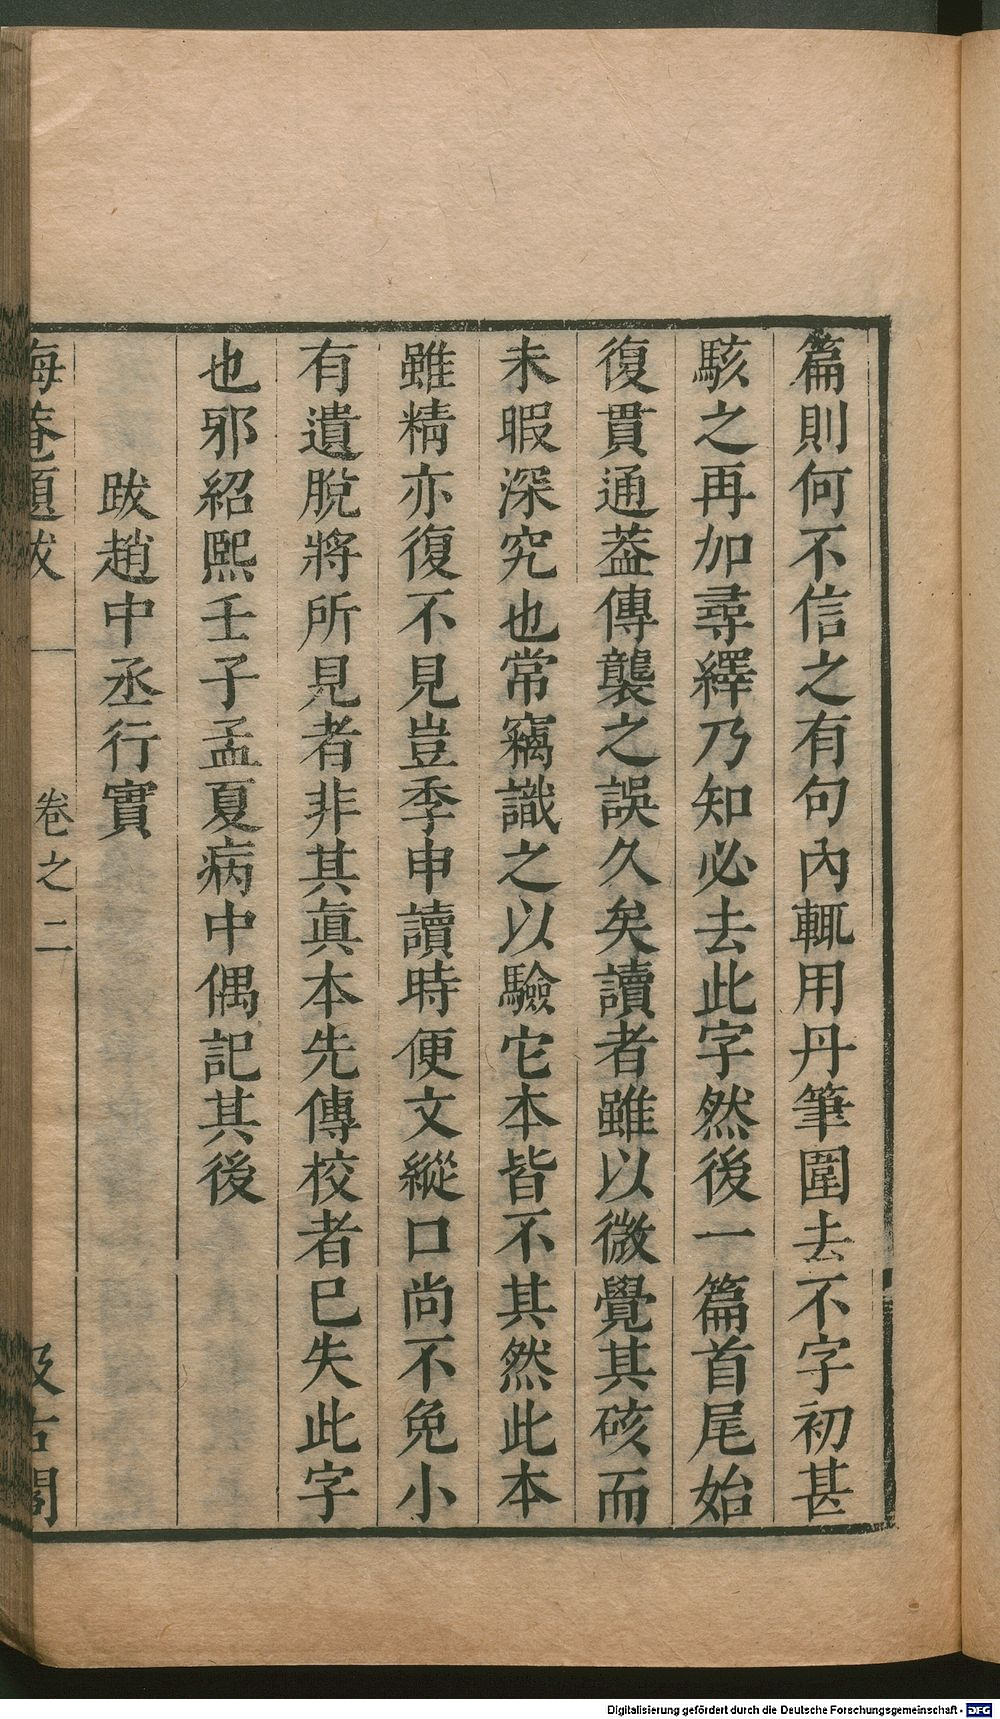 篇則何不信之有句內輒用丹筆圍去不字初甚
駭之再加尋繹乃知必去此字然後一篇首尾始
復貫通葢傳襲之誤久矣讀者雖以微覺其硋而
未暇深究也常竊識之以驗它本皆不其然此本
雖精亦復不見豈季申讀時便文縱口尚不免小
有遺脫將所見者非其眞本先傳校者已失此字
也邪紹熙壬子孟夏病中偶記其後
跋趙中丞行實
晦菴題跋 卷之二 汲古閣
Digitalisierung gefördert durch die Deutsche Forschungsgemeinschaft - DFG